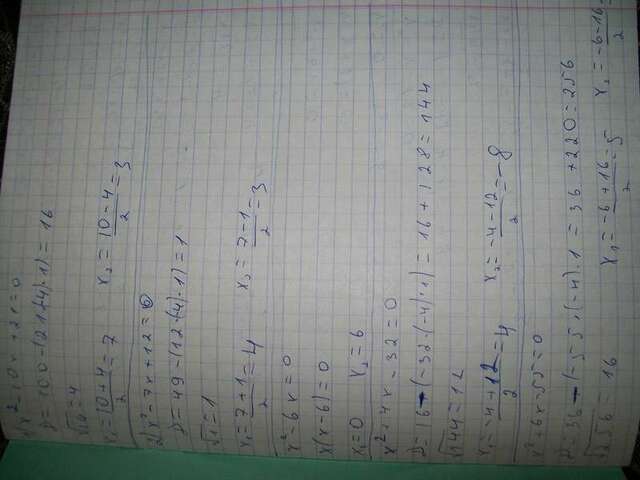 x²-10x+21=0
D=100-(21·(4)·1)=16
√16=4
x₁=(10+4)/2=7 x₂=(10-4)/2=3
2)x²-7x+12=0
D=49-(12·(4)·1)=1
√1=1
x₁=(7+1)/2=4 x₂=(7-1)/2=3
x²-6x=0
x(x-6)=0
x₁=0 x₂=6
x²+4x-32=0
D=16-(-32·(-4)·1)=16+128=144
√144=12
x₁=(-4+12)/2=4 x₂=(-4-12)/2=-8
x²+6x-55=0
D=36-(-55·(-4)·1=36+220=256
√256=16 x₁=(-6+16)/2=5 x₂=(-6-16)/2